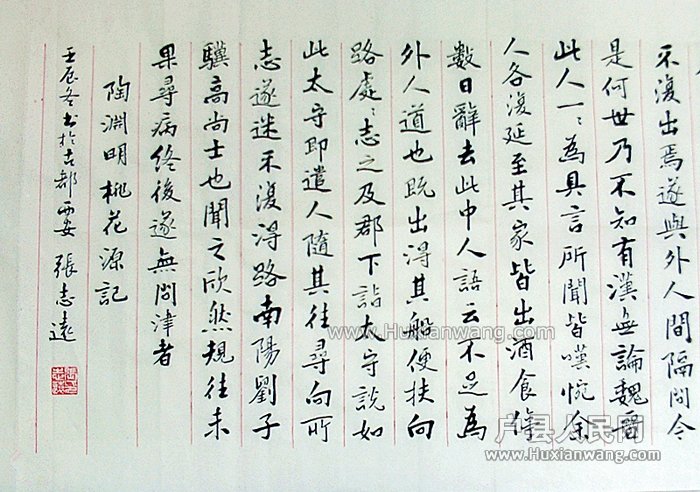 不復出焉遂與外人間隔問今
是何世乃不知有漢無論魏晉
此人一〻為具言所聞皆嘆惋余
人各復延至其家皆出酒食停
數日辭去此中人語云不足為
外人道也既出得其船便扶向
路處〻志之及郡下詣太守說如
此太守即遣人隨其往尋向所
志遂迷不復得路南陽劉子
驥高尚士也聞之欣然規往未
果尋病終後遂無問津者
陶淵明桃花源記
壬辰冬书於古都西安 張志遠
www.Huxianwang.com
户县人民网
www.Huxianwang.com